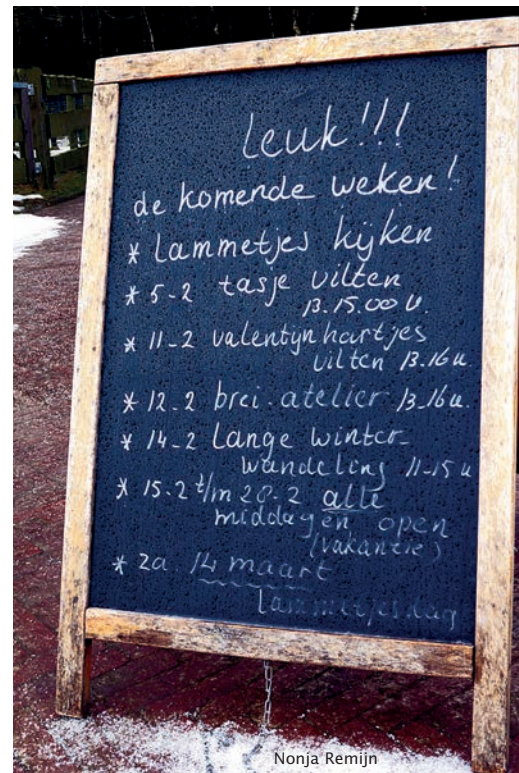 leuk!!!
de komende weken!
* lammetjes kijken
* 5-2 tasje vilten
13.15.00 u.
* 11-2 valentijnhartjes
vilten 13.16 u.
* 12-2 brei-atelier 13-16 u.
* 14-2 lange winter-
wandeling 11-15 u
* 15-2 t/m 28-2 alle
middagen open
(vakantie)
* za. 14 maart
lammetjesdag
Nonja Remijn